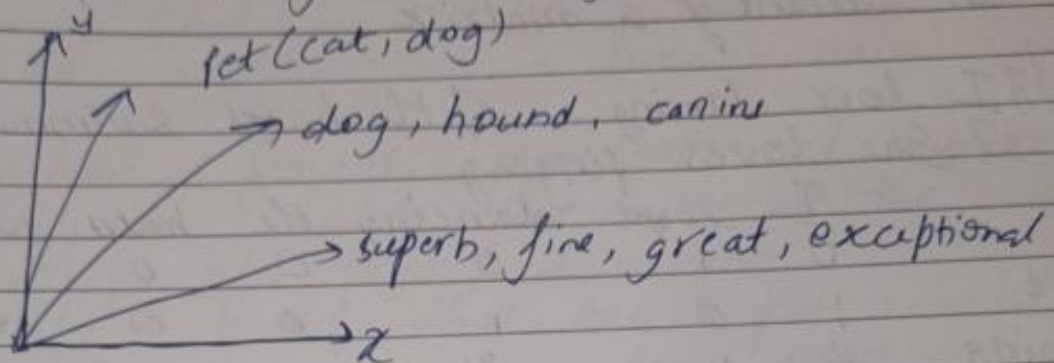 y
pet (cat, dog)
dog, hound, canine
superb, fine, great, exceptional
x